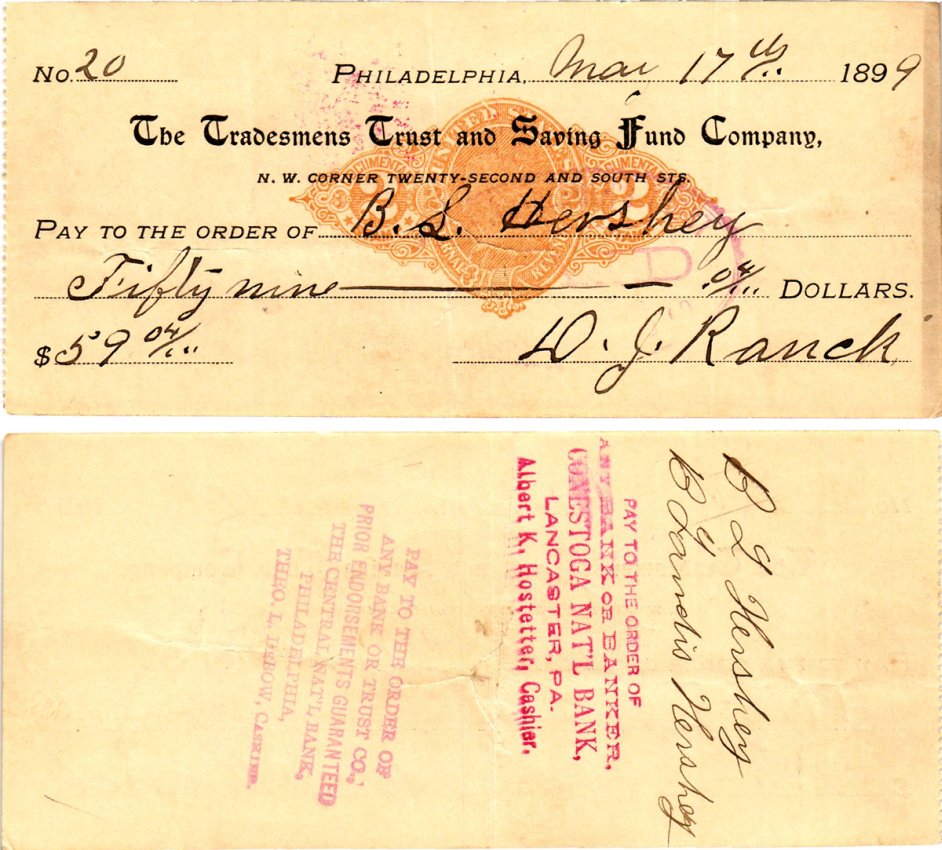 No. 20 PHILADELPHIA, Mar 17th 1899
The Tradesmens Trust and Saving Fund Company,
N. W. CORNER TWENTY-SECOND AND SOUTH STS.
PAY TO THE ORDER OF B. L. Hershey
Fifty nine 04/.. DOLLARS.
$59 04/.. D. J. Ranck
B L Hershey
B Landis Hershey
PAY TO THE ORDER OF
ANY BANK OR BANKER,
CONESTOGA NAT'L BANK,
LANCASTER, PA.
Albert K. Hostetter, Cashier.
PAY TO THE ORDER OF
ANY BANK OR TRUST CO.,
PRIOR ENDORSEMENTS GUARANTEED
THE CENTRAL NAT'L BANK,
PHILADELPHIA,
THEO. L. DEBOW, CASHIER.